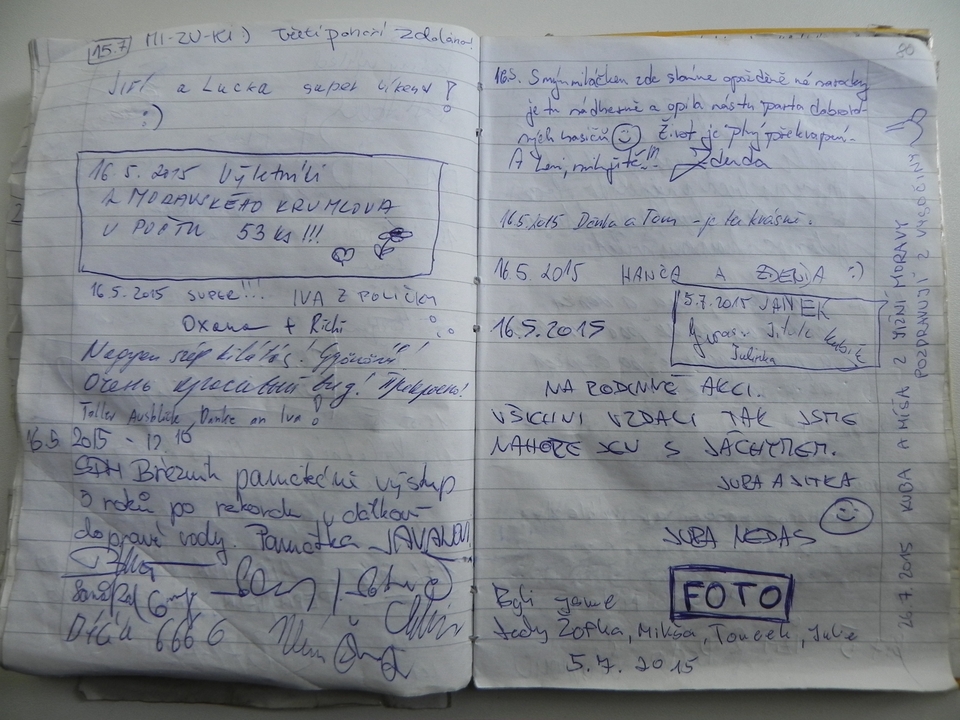 15.7 MI-ZU-KI :) Třetí pohoří zdoláno!
Jiří a Lucka super víkend!
:)
16 5. 2015 Výletníci
z MORAVSKÉHO KRUMLOVA
V POČTU 53 ks !!!
16.5 2015 SUPER!!! IVA Z POLIČKY
Oxana + Richi
Nagyon szép kilátás!
Очень красивый вид! Прекрасно!
Toller Ausblick, Danke an Iva!
16.5 2015 - 12.16
SDH Březník památečné výstup
3 roků po rekordu v dálkov
dopravě vody. Památka
6666
16.5. S mým miláčkem zde slavíme opožděně mé narozky
je tu nádherně a opila nás tu parta dobrovol-
ných hasičů Život je plný překvapení.
A ženi, milujitě!!! Zdenda
16.5.2015 Denka a Tom - je tu krásně.
16.5.2015 HANČA A ZDENDA :)
5.7.2015 JANEK
Julinka
16.5.2015
NA RODINNÉ AKCI.
VŠICHNI VZDALI TAK JSME
NAHOŘE JEN S JÁCHYMEM.
JURA A JITKA
JURA NEDAS
FOTO
Byli jsme
tady Žofka, Miksa, Toucek, Jule
5.7. 2015
26.7.2015 KUBA A MÍŠA Z JIŽNÍ MORAVY
POZDRAVUJÍ Z VYSOČINY